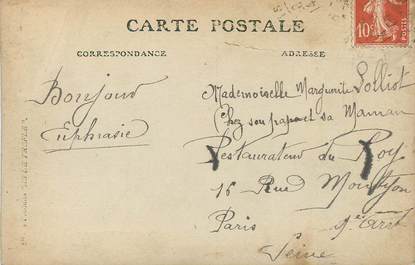 CARTE POSTALE
CORRESPONDANCE
ADRESSE
10c
POSTES
Bonjour
Euphrasie
Mademoiselle Marguerite Lolliot
Chez son papa et sa Maman
Restaurateur du Roy
16 Rue Montyon
9e Arrt
Paris
Seine